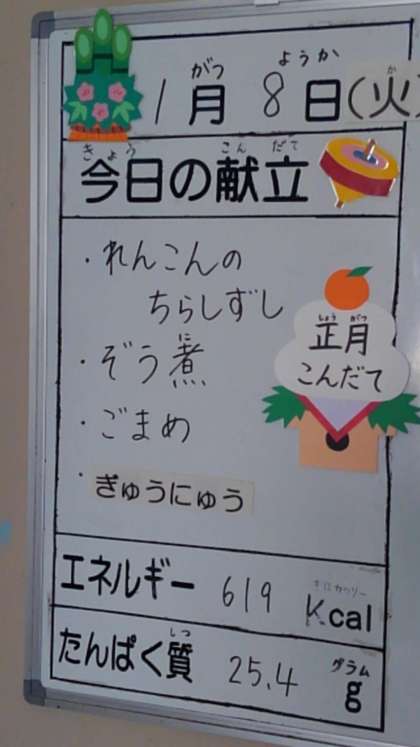 がつ ようか か
1月8日(火)
きょう こんだて
今日の献立
・れんこんの
ちらしずし
しょう がつ
正月
こんだて
に
・ぞう煮
・ごまめ
・ぎゅうにゅう
キロカロリー
エネルギー 619 Kcal
しつ グラム
たんぱく質 25.4 g